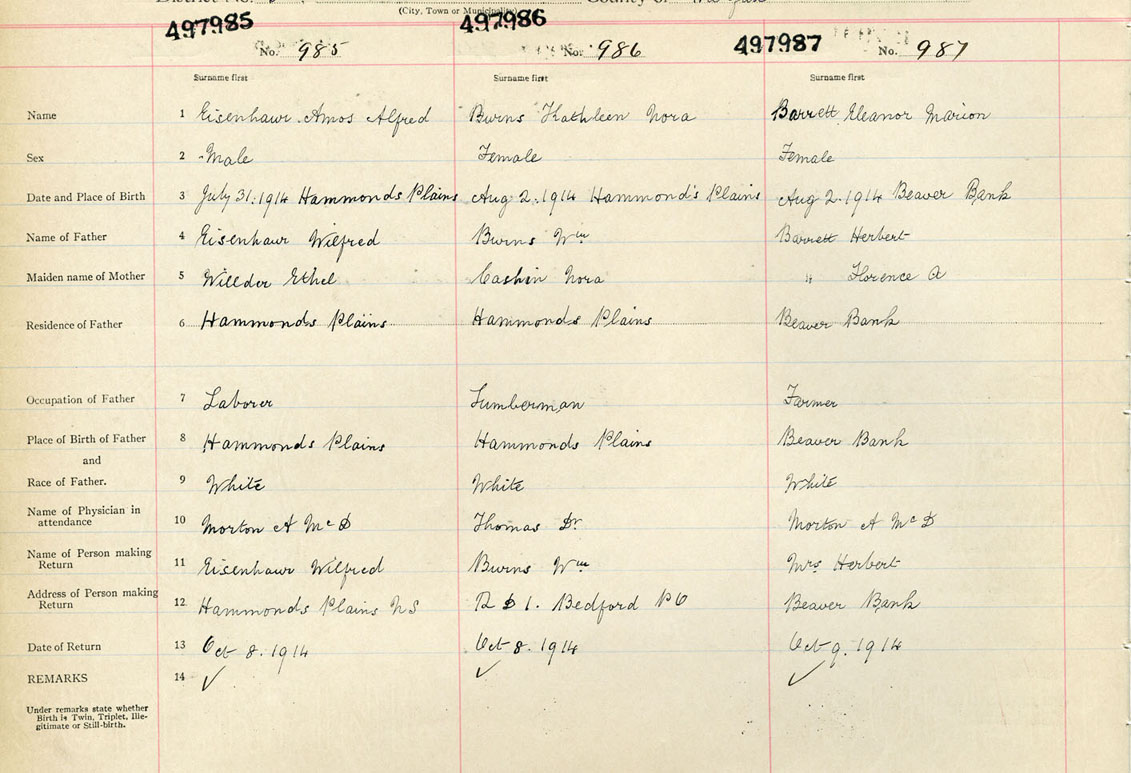 (City, Town or Municipality)
497985 497986 497987
No. 985 No. 986 No. 987
Surname first Surname first Surname first
Name 1 Eisenhaur Amos Alfred Burns Kathleen Nora Barrett Eleanor Marion
Sex 2 Male Female Female
Date and Place of Birth 3 July 31. 1914 Hammonds Plains Aug 2. 1914 Hammond's Plains Aug 2. 1914 Beaver Bank
Name of Father 4 Eisenhaur Wilfred Burns Wm Barrett Herbert
Maiden name of Mother 5 Willder Ethel Cashin Nora " Florence A
Residence of Father 6 Hammonds Plains Hammonds Plains Beaver Bank
Occupation of Father 7 Laborer Lumberman Farmer
Place of Birth of Father 8 Hammonds Plains Hammonds Plains Beaver Bank
and
Race of Father. 9 White White White
Name of Physician in
attendance 10 Morton A McD Thomas Dr Morton A McD
Name of Person making
Return 11 Eisenhaur Wilfred Burns Wm Mrs Herbert
Address of Person making
Return 12 Hammonds Plains NS R D 1. Bedford PO Beaver Bank
Date of Return 13 Oct 8. 1914 Oct 8. 1914 Oct 9. 1914
REMARKS 14 ✓ ✓ ✓
Under remarks state whether
Birth is Twin, Triplet, Ille-
gitimate or Still-birth.